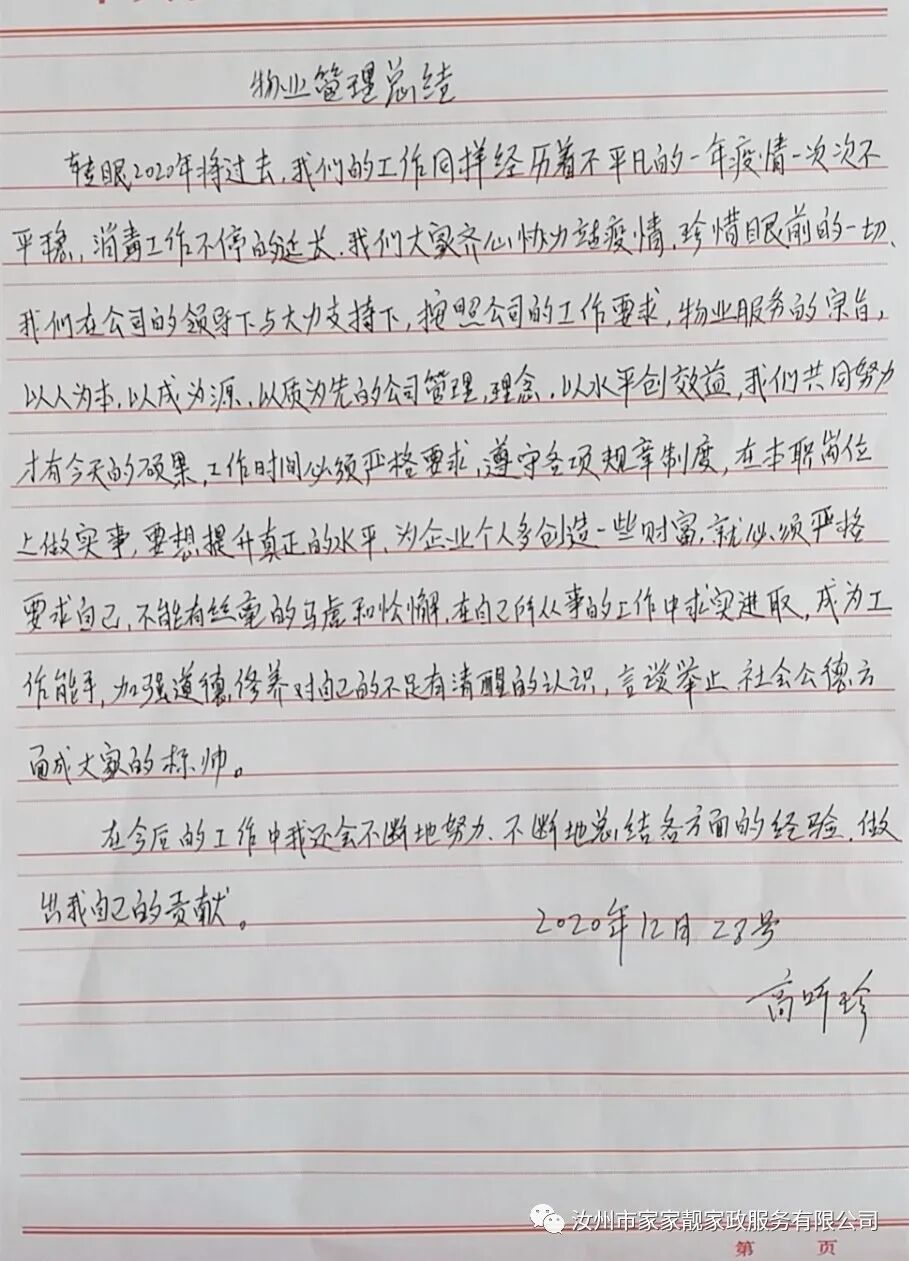 物业管理总结
转眼2020年将过去,我们的工作同样经历着不平凡的一年疫情一次次不
平稳,消毒工作不停的延长.我们大家齐心协力战疫情,珍惜眼前的一切、
我们在公司的领导下与大力支持下,按照公司的工作要求,物业服务的宗旨,
以人为本,以成为源,以质为先的公司管理,理念.以水平创效益,我们共同努力
才有今天的硕果,工作时间必须严格要求,遵守各项规章制度,在本职岗位
上做实事,要想提升真正的水平、为企业个人多创造一些财富,就必须严格
要求自己,不能有丝毫的马虎和松懈,在自己所从事的工作中求实进取,成为工
作能手,加强道德修养对自己的不足有清醒的认识,言谈举止、社会公德方
面成大家的标帅。
在今后的工作中我还会不断地努力、不断地总结各方面的经验.做
出我自己的贡献。
2020年12月28号
高听珍
汝州市家家靓家政服务有限公司
第 页